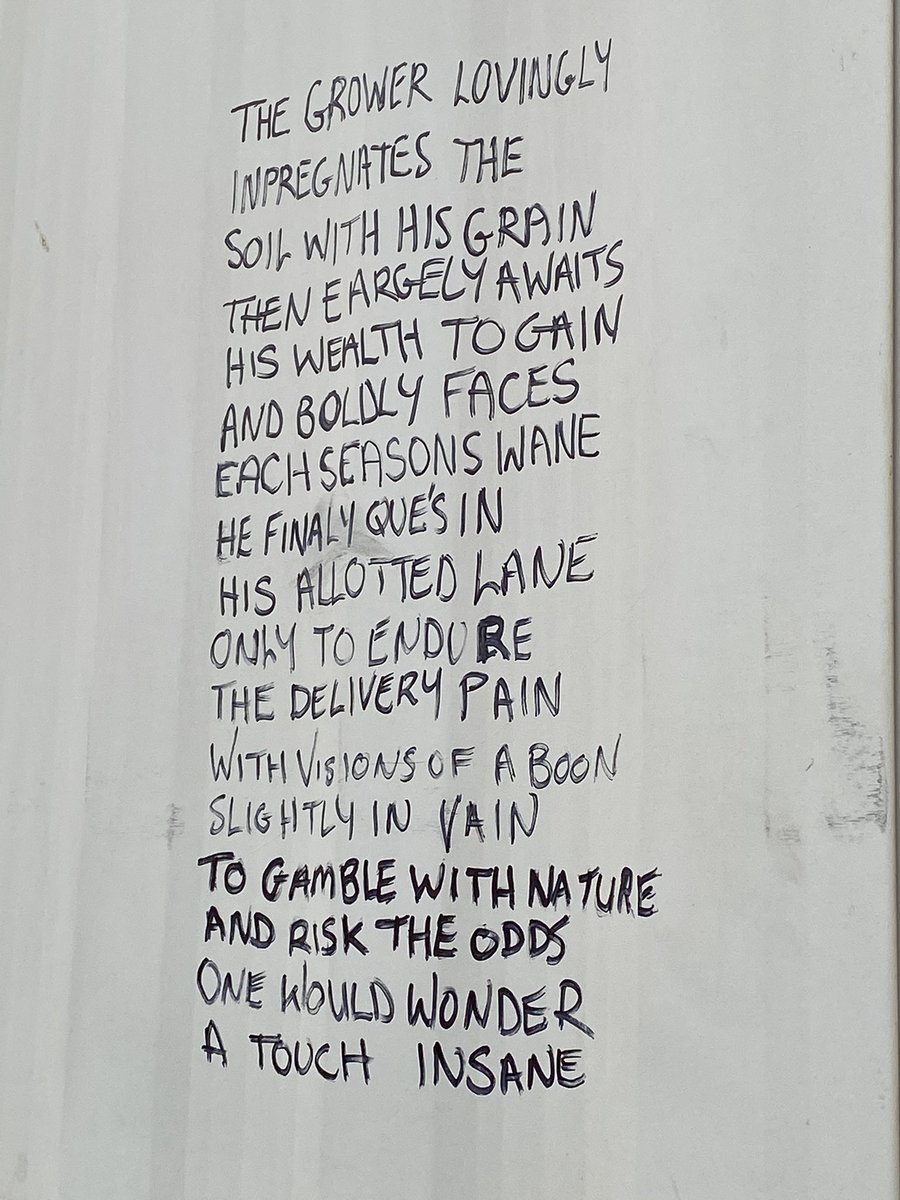 THE GROWER LOVINGLY
INPREGNATES THE
SOIL WITH HIS GRAIN
THEN EARGELY AWAITS
HIS WEALTH TO GAIN
AND BOLDLY FACES
EACH SEASONS WANE
HE FINALY QUE'S IN
HIS ALLOTTED LANE
ONLY TO ENDURE
THE DELIVERY PAIN
WITH VISIONS OF A BOON
SLIGHTLY IN VAIN
TO GAMBLE WITH NATURE
AND RISK THE ODDS
ONE WOULD WONDER
A TOUCH INSANE